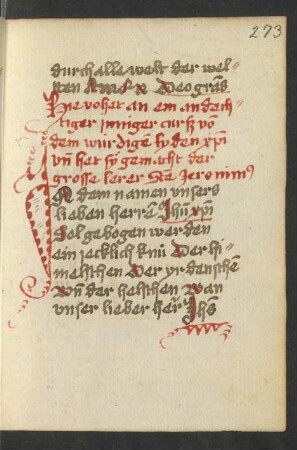 273
durch alle welt der wel-
ten Amen Deo gras
Hie vohet an ein andech-
tiger inniger curß vō
dem würdige lyden xpi
vn̄ het sy gemacht der
grosse lerer Ste Jeronimus
In dem namen unsers
lieben herrē Jhū xpi
Sol gebogen werden
ein jecklich knü Der hi-
melschen Der yrdenschē
Vn̄ der helschen wan
unser lieber her Jhs